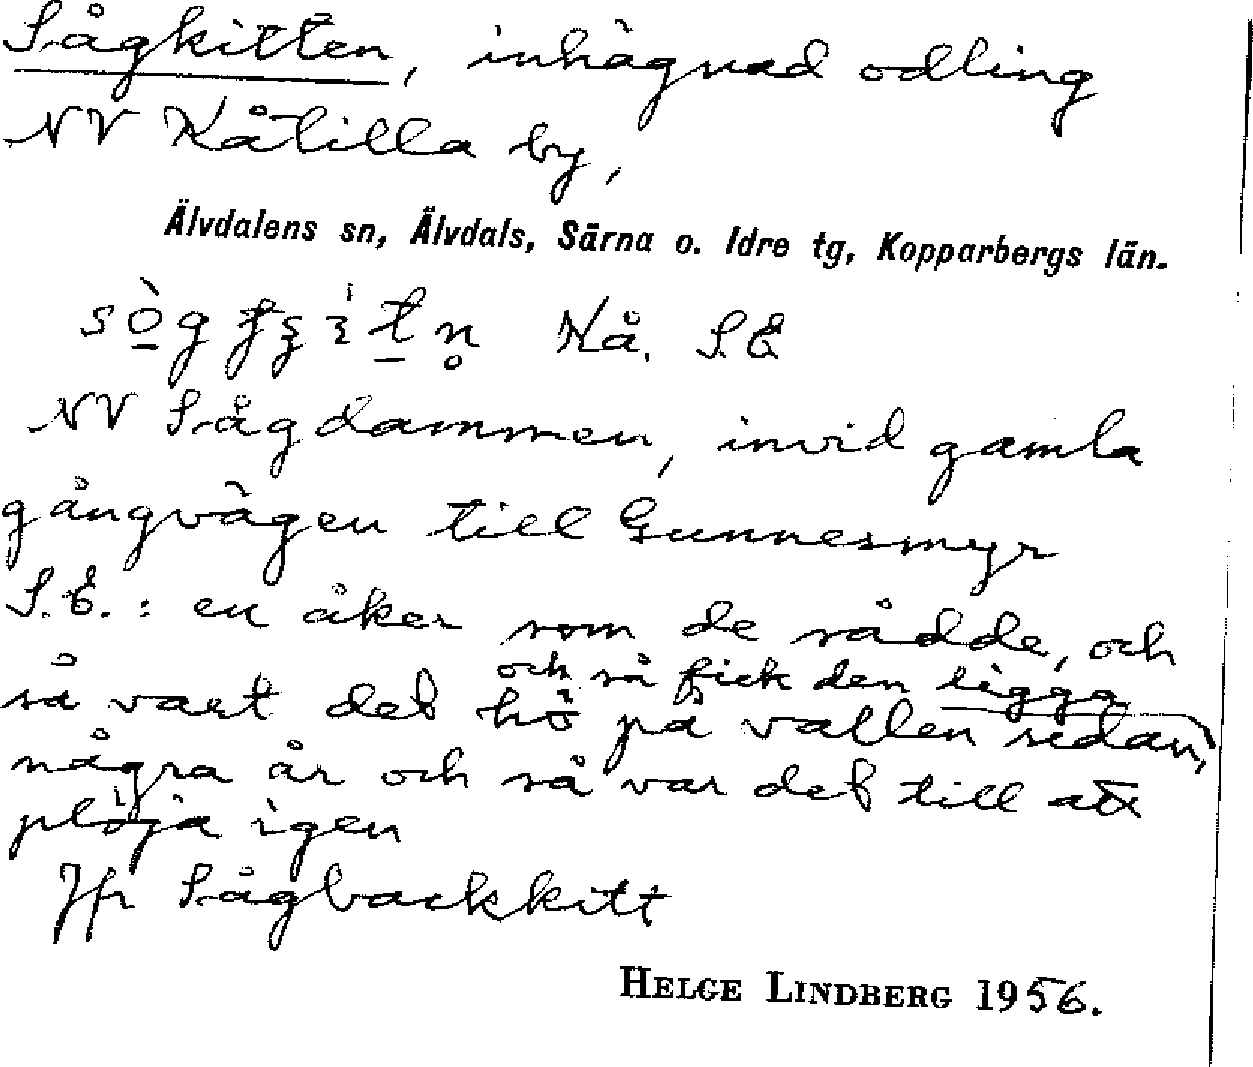 Sågkitten, inhägnad odling
NV Nåtilla by,
Älvdalens sn, Älvdals, Särna o. Idre tg, Kopparbergs län.
Nå. S.E
NV Sågdammen, invid gamla
gångvägen till Gunnesmyr
S.E. : en åker som de sådde, och
och så fick den ligga
så vart det hö på vallen sedan,
några år och så var det till att
plöja igen
Jfr Sågbackkitt
HELGE LINDBERG 1956.